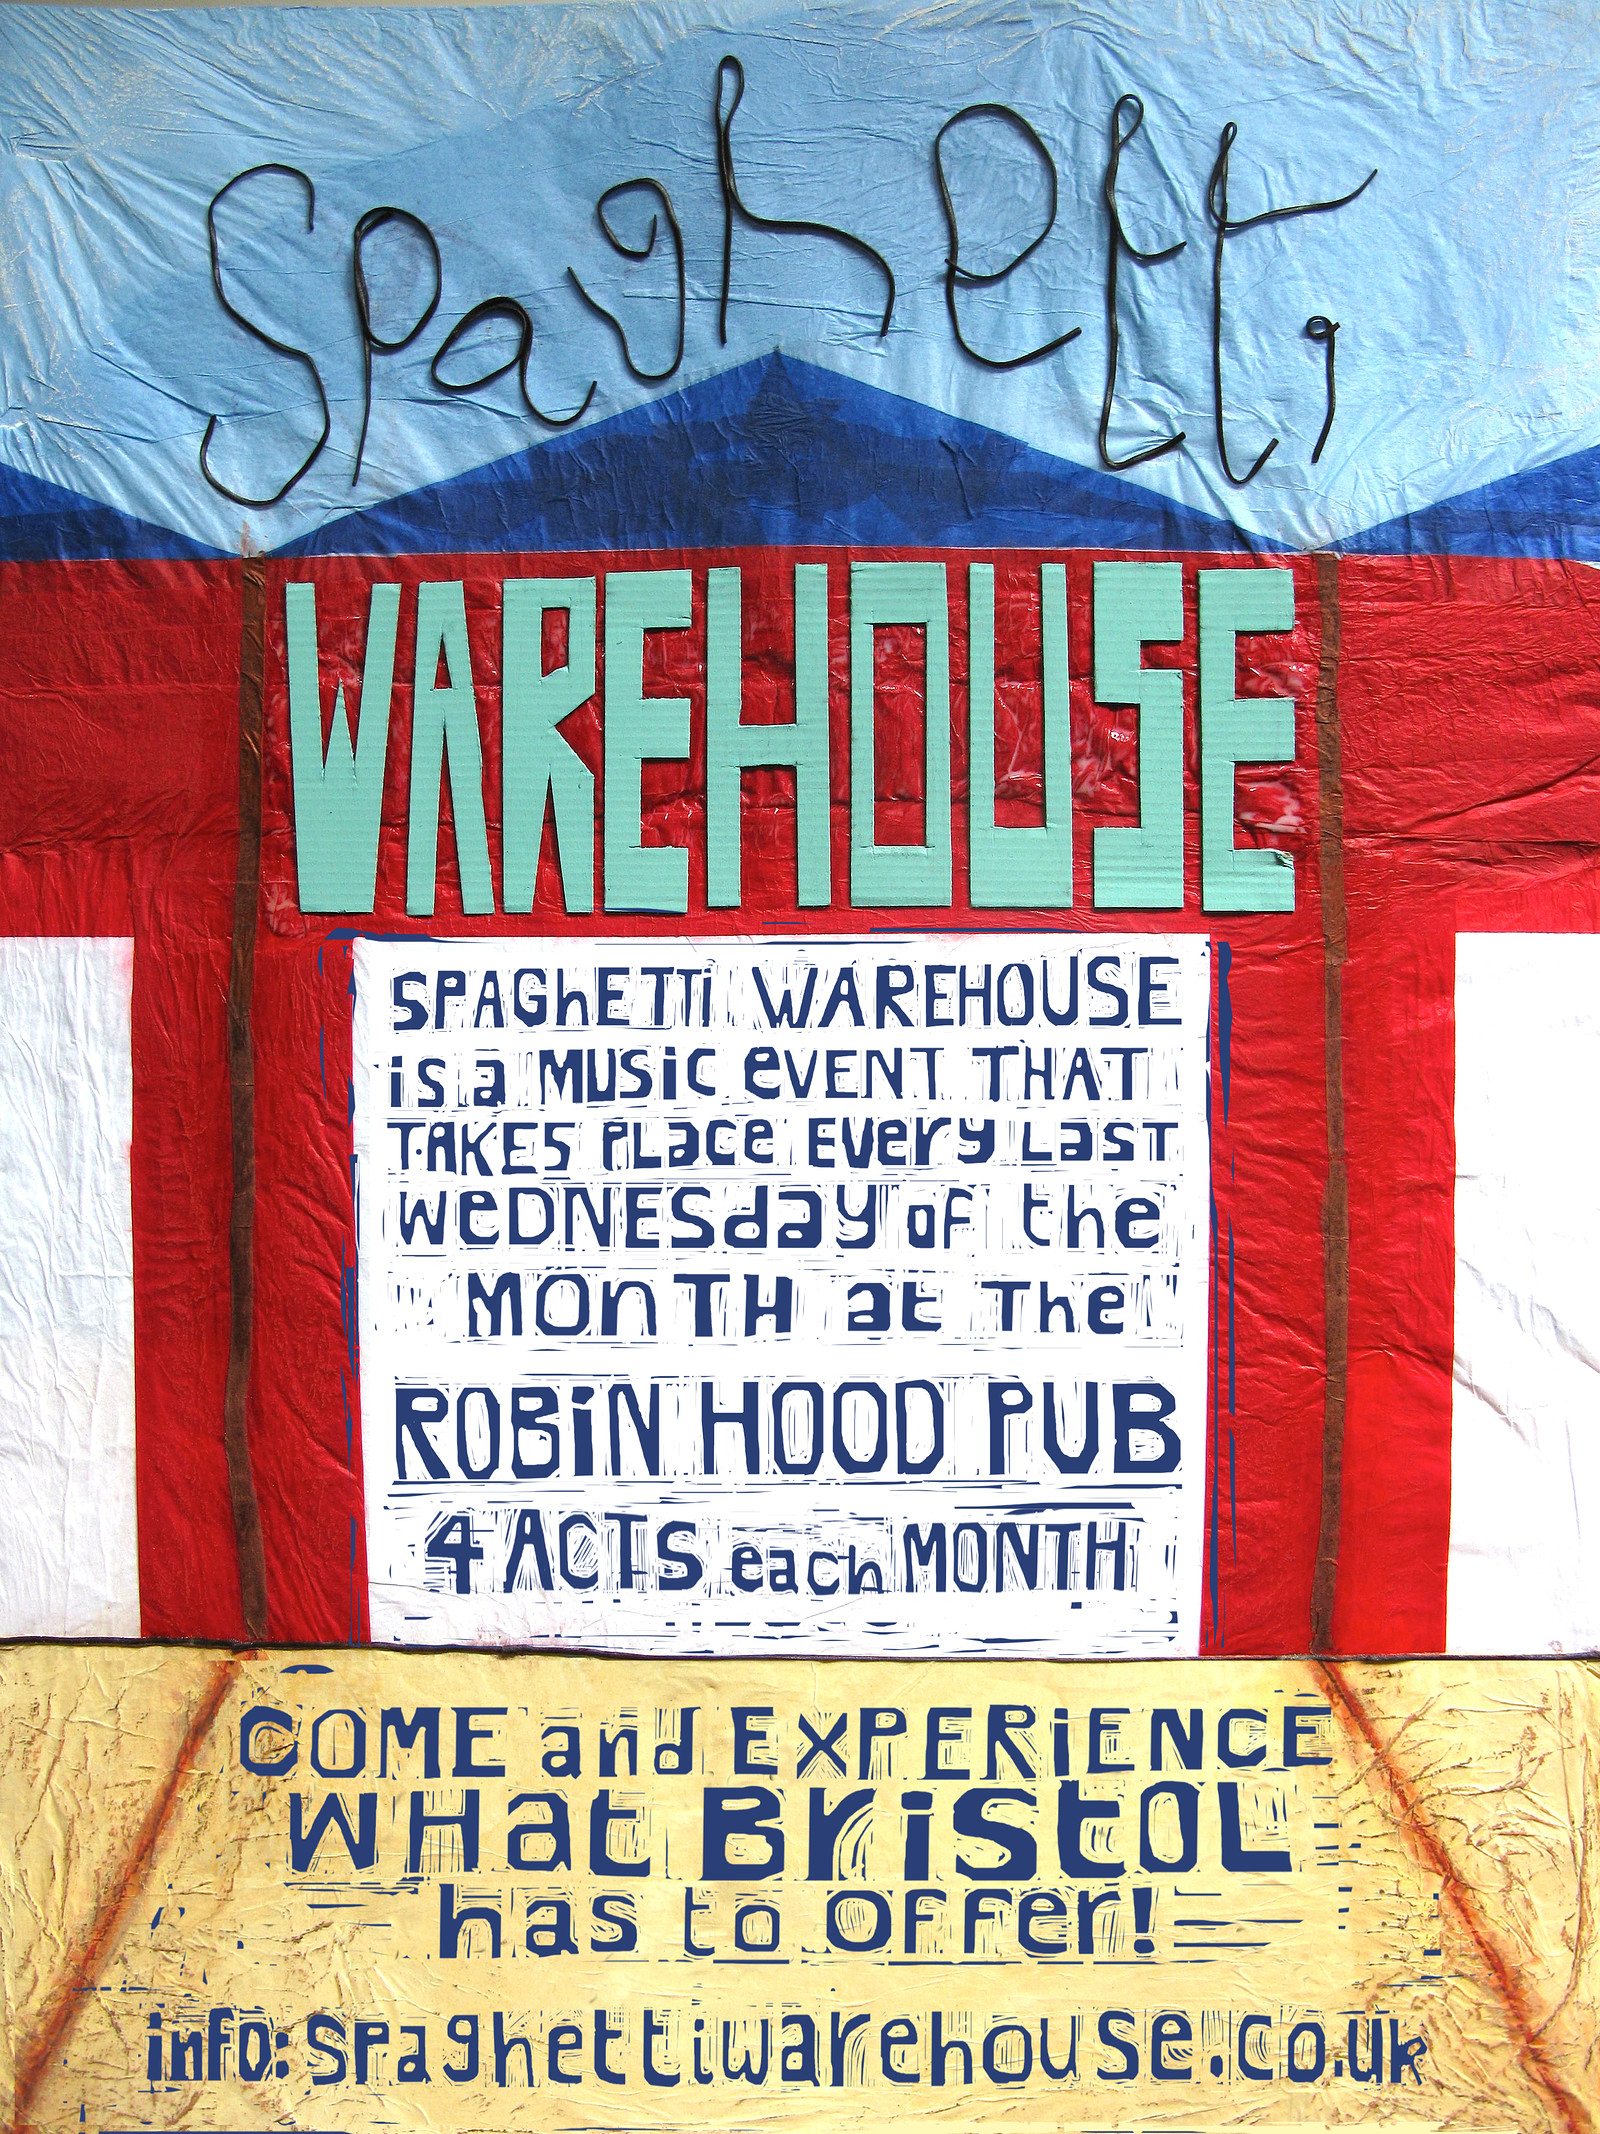 Spaghetti
WAREHOUSE
SPAGhETTi WAREHOUSE
is a MUSiC eVENT THAT
TAKES PLace EVery LasT
WeDNESday oF the
MOnTH at The
ROBiN HOOD PUB
4 ACTS each MONTH
COME and EXPERiENCE
WHat BristOL
has to OFFer!
info: spaghettiwarehouse.co.uk